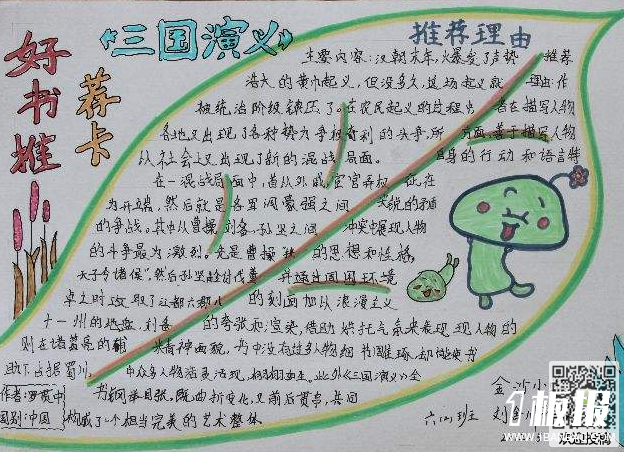 好书推
荐卡
《三国演义》
推荐理由
主要内容:汉朝末年,爆发了声势
浩大的黄巾起义,但没多久,这场起义就
被统治阶级镇压了。在农民起义的过程中
各地又出现了各种势力争权夺利的头争,所
从社会上又出现了新的混战局面。
在一混战局面中,首从外戚,宦官弄权
为开端,然后就是各军阀豪强之间
的争战。其中从曹操 刘备、孙坚之间
的斗争最为激烈。先是曹操
天子令诸侯",然后孙坚趁讨伐董
卓之时攻取了江都六郡八
十一州的地盘,刘备
则在诸葛亮的辅
助下占据蜀川。
推荐
理由:作
者在描写人物
方面,善于描写人物
自身的行动和语言特
冲突中展现人物
的思想和性格,
并通过周围环境
的刻画加从浪漫主义
的夸张和渲染,借助烘托气氛来表现现人物的
来者神面貌。
中众多人物活灵活现,栩栩如生。此外《三国演义》全
书结纲举目张,既曲折变化,又前后贯串,共同
构成了个相当完美的艺术整体
作者:罗贯中
国别:中国
金沙小
六(4)班
板报
欢迎投稿